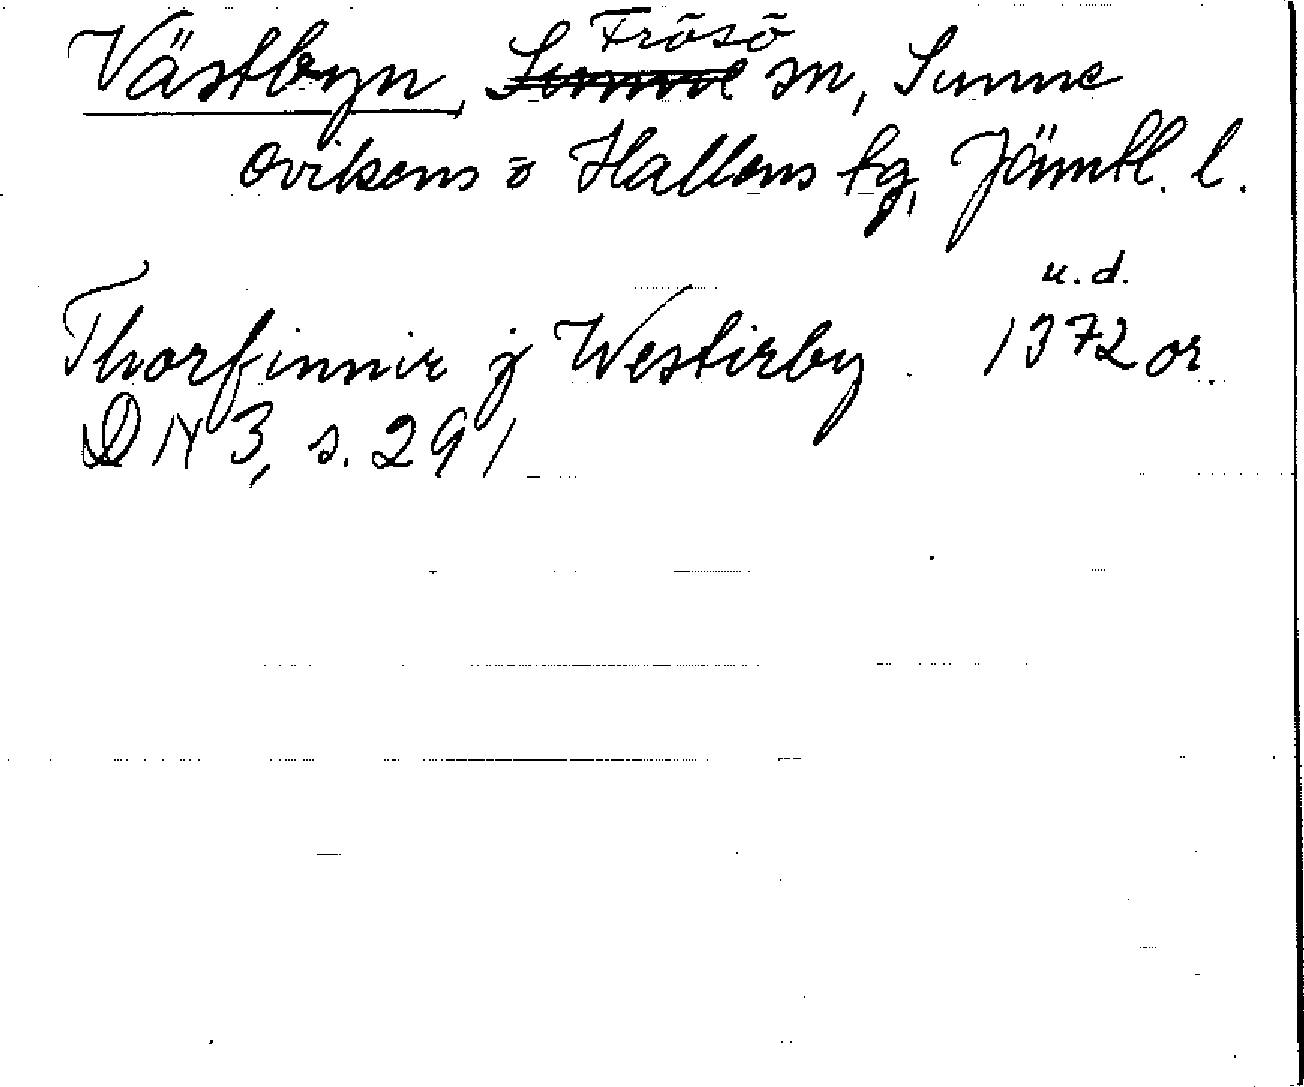 Västbyn, Frösö sn, Sunne
Ovikens o Hallens tg, Jämtl. l.
u.d.
Thorfinnir j Westirby. 1372 or.
DN 3, s. 291